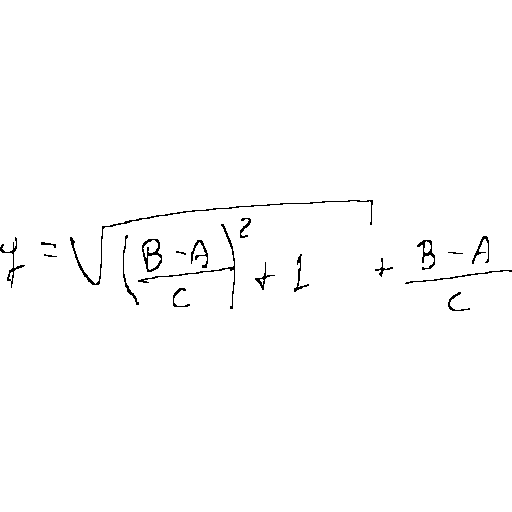 y = \sqrt{\left(\frac{B-A}{C}\right)^2 + 1} + \frac{B-A}{C}